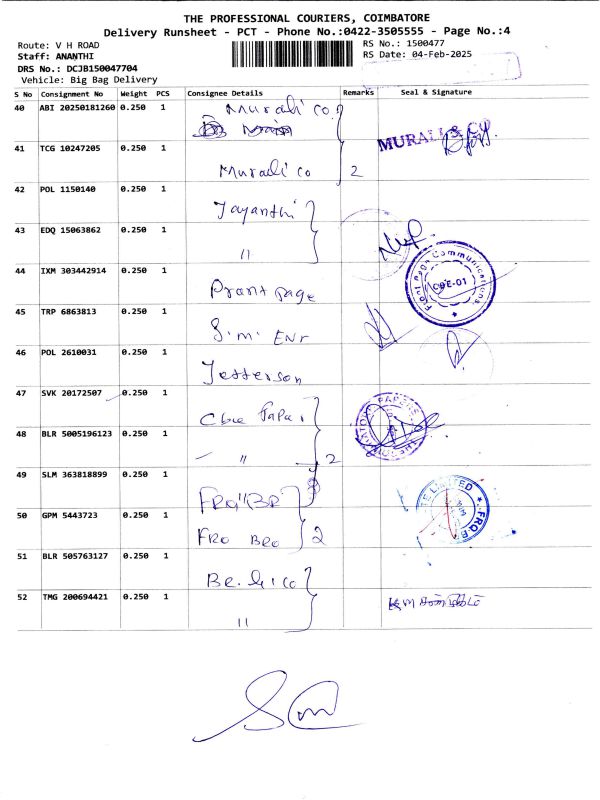 THE PROFESSIONAL COURIERS, COIMBATORE
Delivery Runsheet - PCT - Phone No.:0422-3505555 - Page No.:4
Route: V H ROAD
RS No.: 1500477
Staff: ANANTHI
RS Date: 04-Feb-2025
DRS No.: DCJB150047704
Vehicle: Big Bag Delivery
S No Consignment No Weight PCS Consignee Details Remarks Seal & Signature
40 ABI 20250181260 0.250 1 Murali co
MURALI & CO
41 TCG 10247205 0.250 1 Murali co 2
42 POL 1150140 0.250 1 Jayanthi
43 EDQ 15063862 0.250 1 "
44 IXM 303442914 0.250 1 Pront page
Front Page Communications
CBE-01
45 TRP 6863813 0.250 1 S.M. ENr
46 POL 2610031 0.250 1 Jefferson
47 SVK 20172507 0.250 1 Cbe Papa.
PAPERS
48 BLR 5005196123 0.250 1 " 2
49 SLM 363818899 0.250 1
LIMITED
50 GPM 5443723 0.250 1 FRO BRO 2
51 BLR 505763127 0.250 1
52 TMG 200694421 0.250 1 "